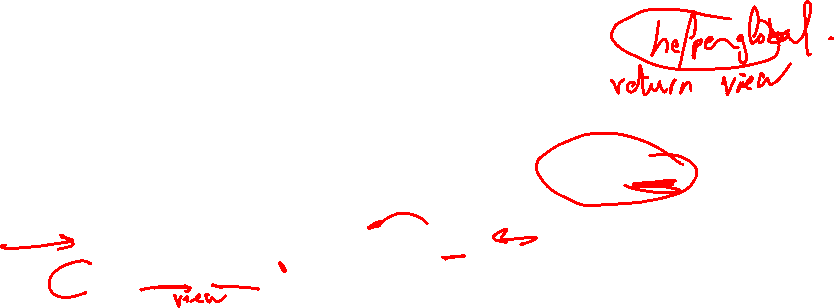 helper global.
return view
C
view